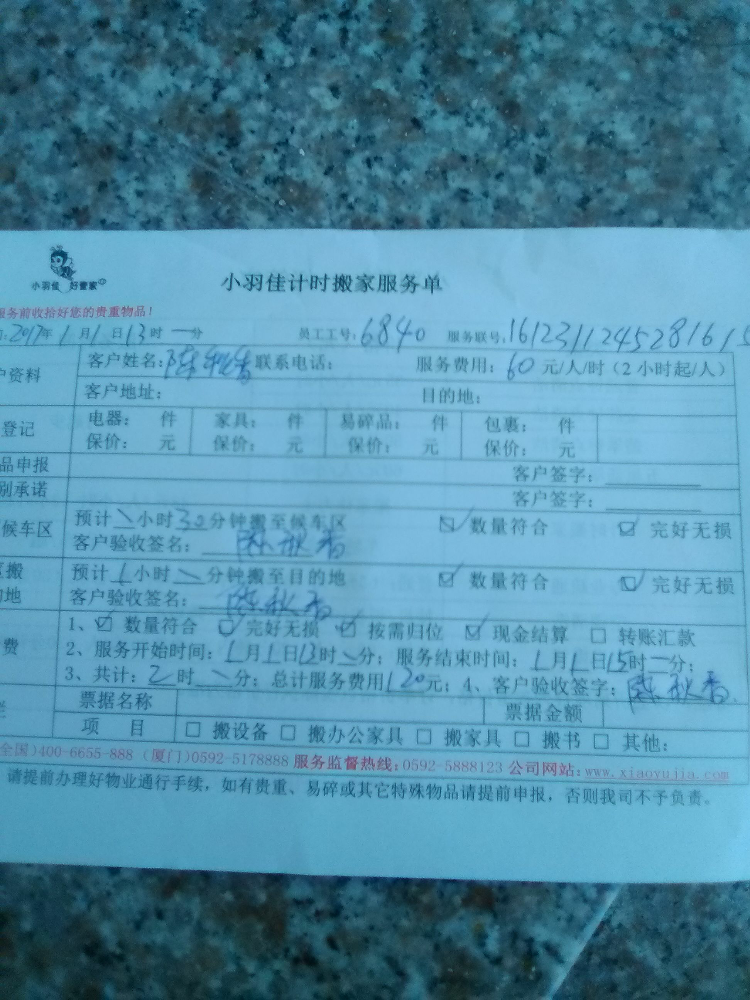 小羽佳 好管家
小羽佳计时搬家服务单
服务前收拾好您的贵重物品!
2017年1月1日13时一分 员工工号:6840 服务联号:161231124528161
户资料 客户姓名:陈秋香 联系电话: 服务费用:60元/人/时(2小时起/人)
客户地址: 目的地:
登记 电器: 件 家具: 件 易碎品: 件 包裹: 件
保价: 元 保价: 元 保价: 元 保价: 元
品申报 客户签字:
别承诺 客户签字:
候车区 预计\小时30分钟搬至候车区 ☑数量符合 ☑完好无损
客户验收签名:陈秋香
搬 预计1小时\分钟搬至目的地 ☑数量符合 ☑完好无损
的地 客户验收签名:陈秋香
费 1、☑数量符合 ☑完好无损 ☑按需归位 ☑现金结算 □转账汇款
2、服务开始时间:1月1日13时\分;服务结束时间:1月1日15时一分;
3、共计:2时\分;总计服务费用120元;4、客户验收签字:陈秋香
票据名称 票据金额
项 目 □搬设备 □搬办公家具 □搬家具 □搬书 □其他:
全国)400-6655-888 (厦门)0592-5178888 服务监督热线:0592-5888123 公司网站:www.xiaoyujia.com
请提前办理好物业通行手续,如有贵重、易碎或其它特殊物品请提前申报,否则我司不予负责。